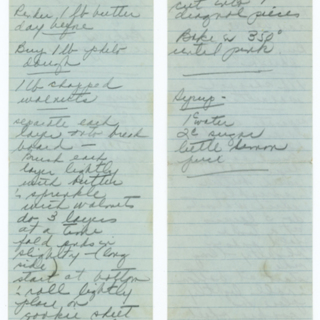 Render 1 lb butter
day before
Buy 1 lb phelo
dough
1 lb chopped
walnuts
separate each
layer on bread
board —
Brush each
layer lightly
with butter
& sprinkle
with walnuts
do 3 layers
at a time
fold ends in
slightly (long
side)
start at bottom
& roll lightly
place on
cookie sheet
cut into 1"
diagonal pieces
Bake @ 350°
until pink
Syrup -
1 C water
2 C sugar
little lemon
juice